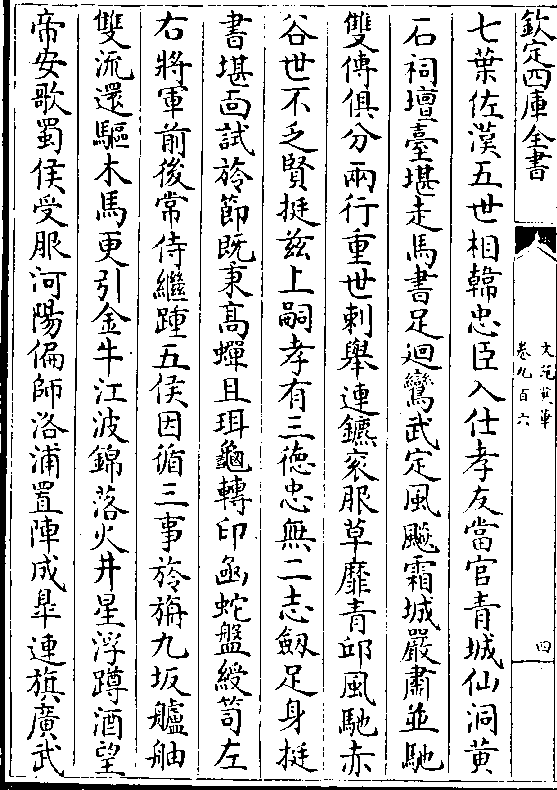 欽定四庫全書
文苑英華
卷九百六
四
七葉佐漢五世相韓忠臣入仕孝友當官青城仙洞黄
石祠壇臺堪走馬書足迴鸞武定風飈霜城嚴肅並馳
雙傳俱分兩行重世刺舉連鑣衮服草靡青邱風馳赤
谷世不乏賢挺兹上嗣孝有三德忠無二志劔足身挺
書堪面試旍節既秉高蟬且珥龜轉印函蛇盤綬笥左
右將軍前後常侍繼踵五侯因循三事旍旃九坂艫舳
雙流還驅木馬更引金牛江波錦落火井星浮蹲酒望
帝安歌蜀侯受服河陽偏師洛浦置陣成臯連旗廣武